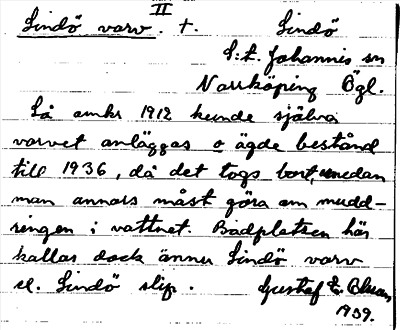 II
Lindö varv. +. Lindö
S:t Johannis sn
Norrköping Ögl.
Så omkr 1912 kunde själva
varvet anläggas o ägde bestånd
till 1936, då det togs bort, emedan
man annars måst göra om mudd-
ringen i vattnet. Badplatsen här
kallas dock ännu Lindö varv
el. Lindö slip. Gustaf E. Bluu
1939.